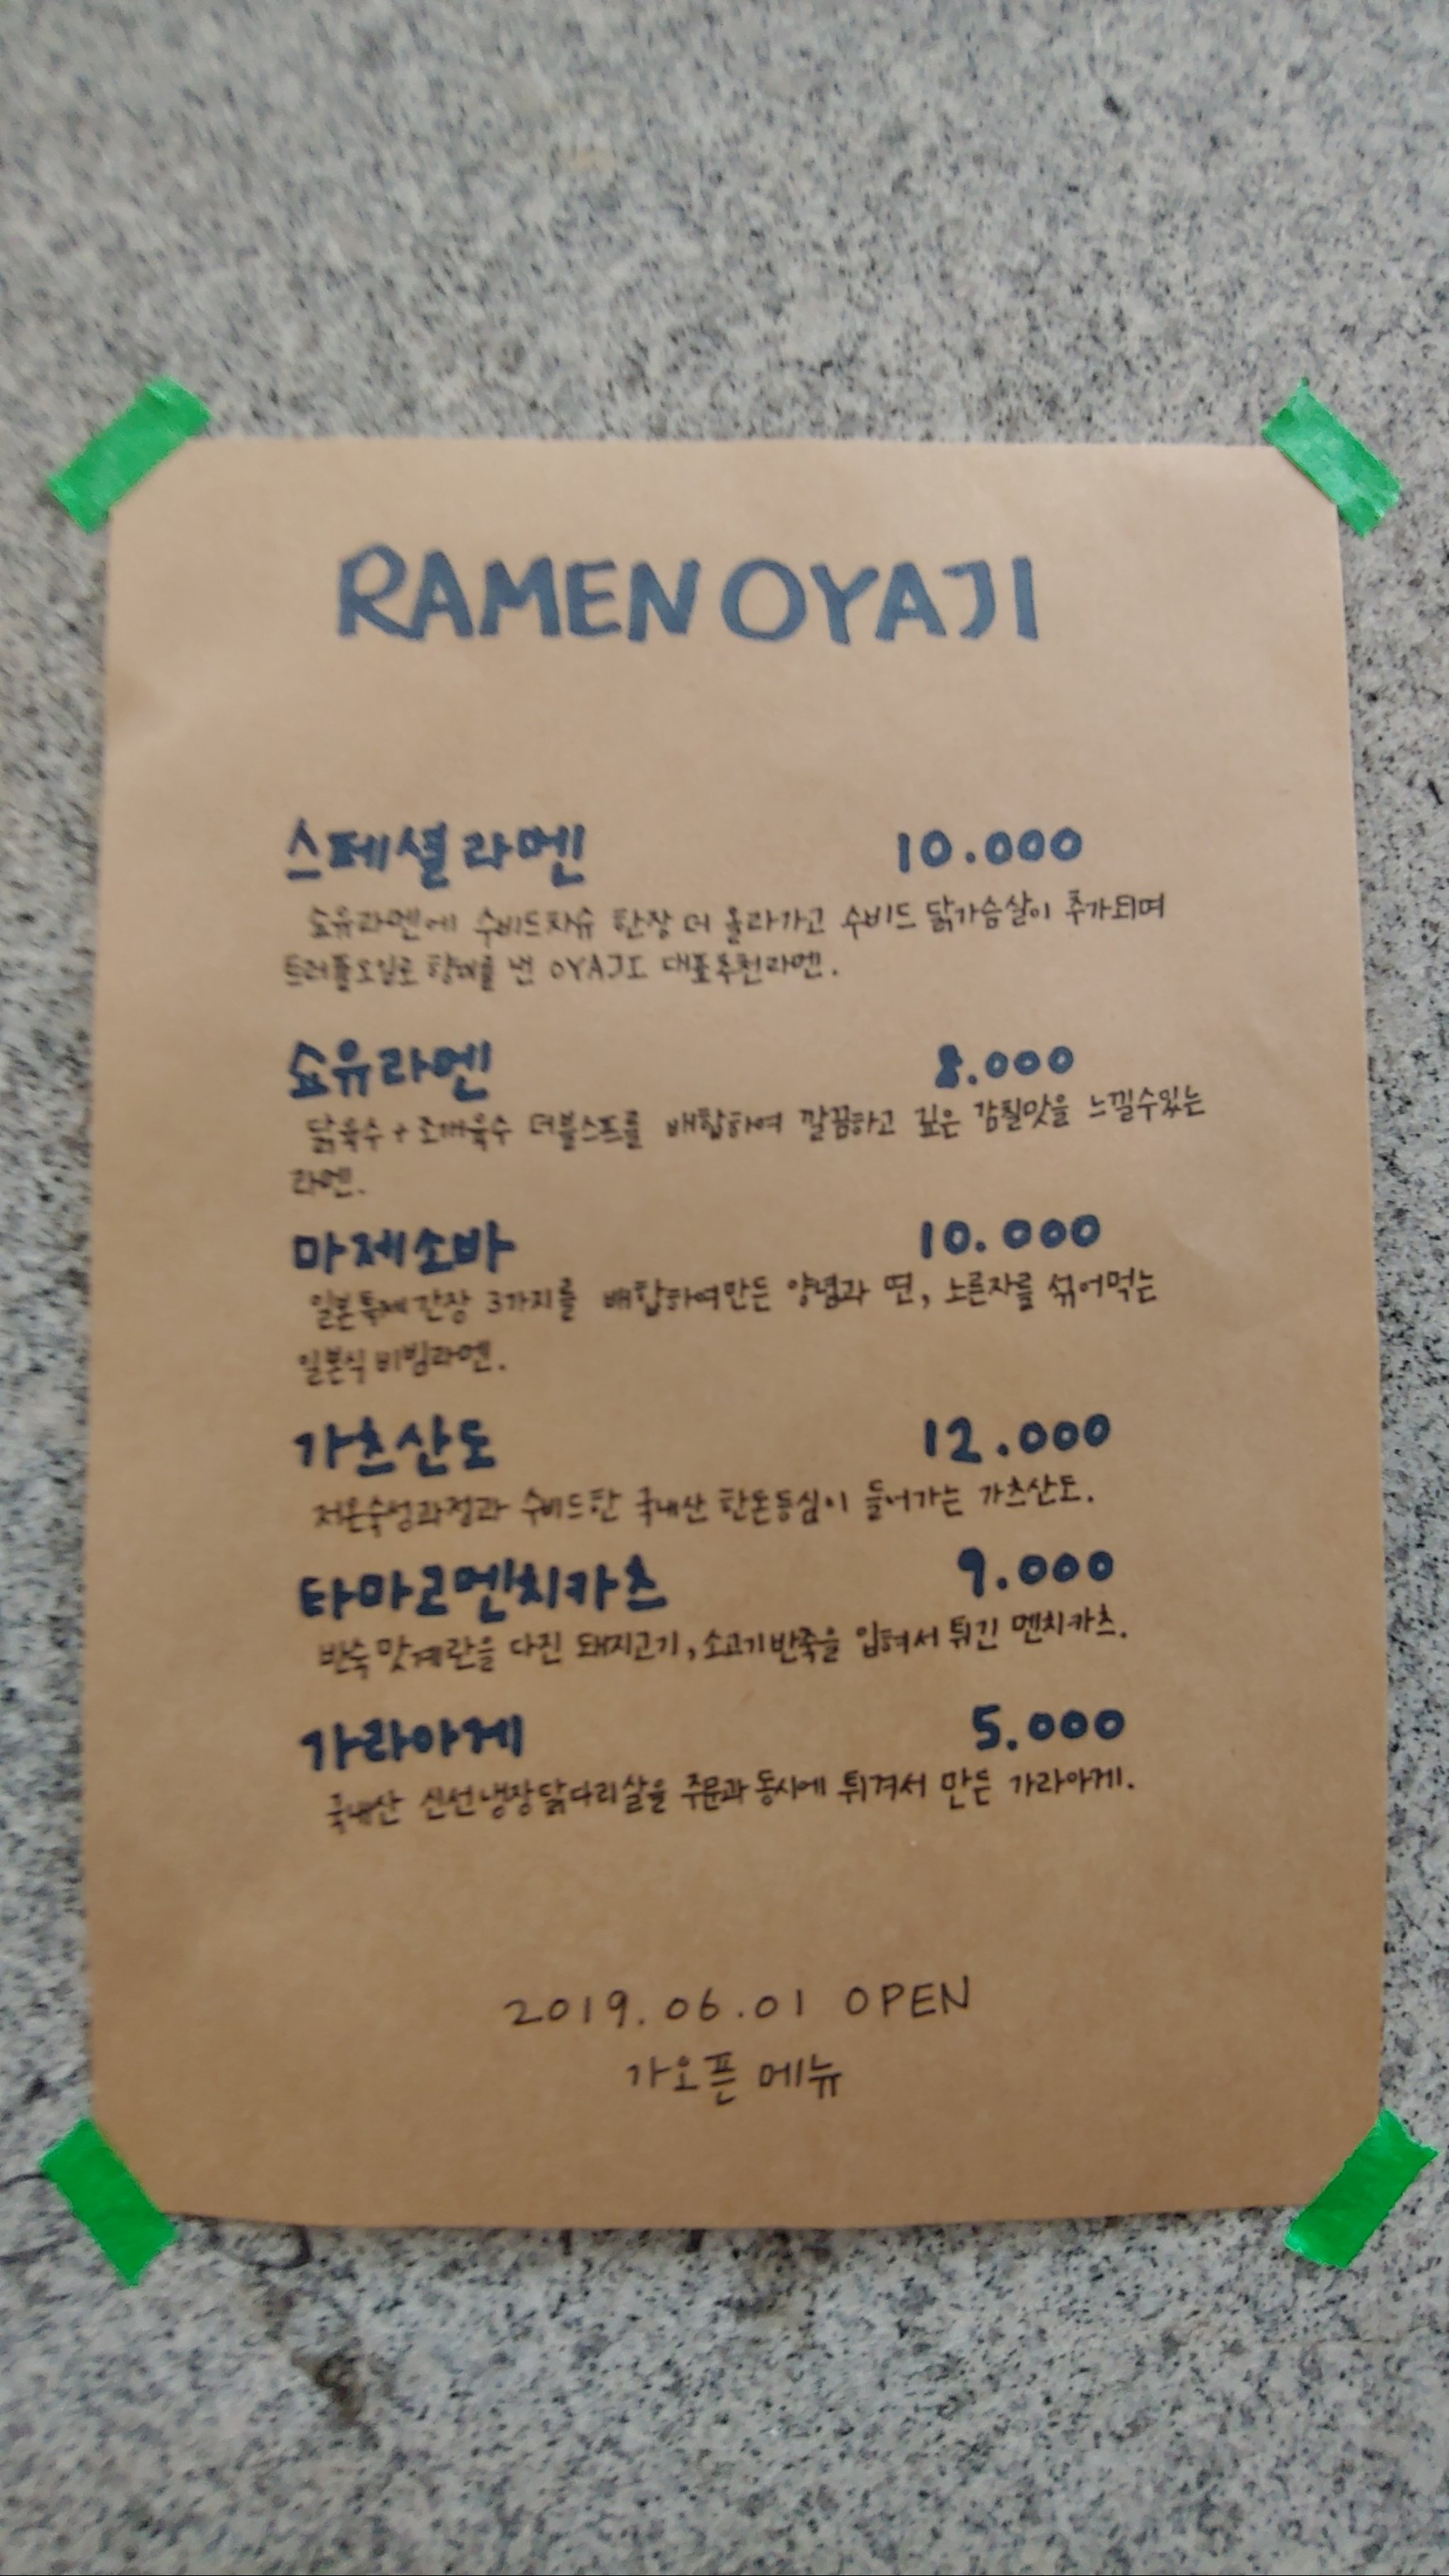 RAMEN OYAJI
스페셜라멘 10.000
쇼유라멘에 수비드차슈 한장 더 올라가고 수비드 닭가슴살이 추가되며
트러플오일로 향미를 낸 OYAJI 대표추천라멘.
쇼유라멘 8.000
닭육수 + 조개육수 더블스프를 배합하여 깔끔하고 깊은 감칠맛을 느낄수있는
라멘.
마제소바 10.000
일본특제간장 3가지를 배합하여만든 양념과 면, 노른자를 섞어먹는
일본식 비빔라멘.
가츠산도 12.000
저온숙성과정과 수비드한 국내산 한돈등심이 들어가는 가츠산도.
타마고멘치카츠 9.000
반숙 맛계란을 다진 돼지고기, 소고기반죽을 입혀서 튀긴 멘치카츠.
가라아게 5.000
국내산 신선냉장닭다리살을 주문과 동시에 튀겨서 만든 가라아게.
2019.06.01 OPEN
가오픈 메뉴